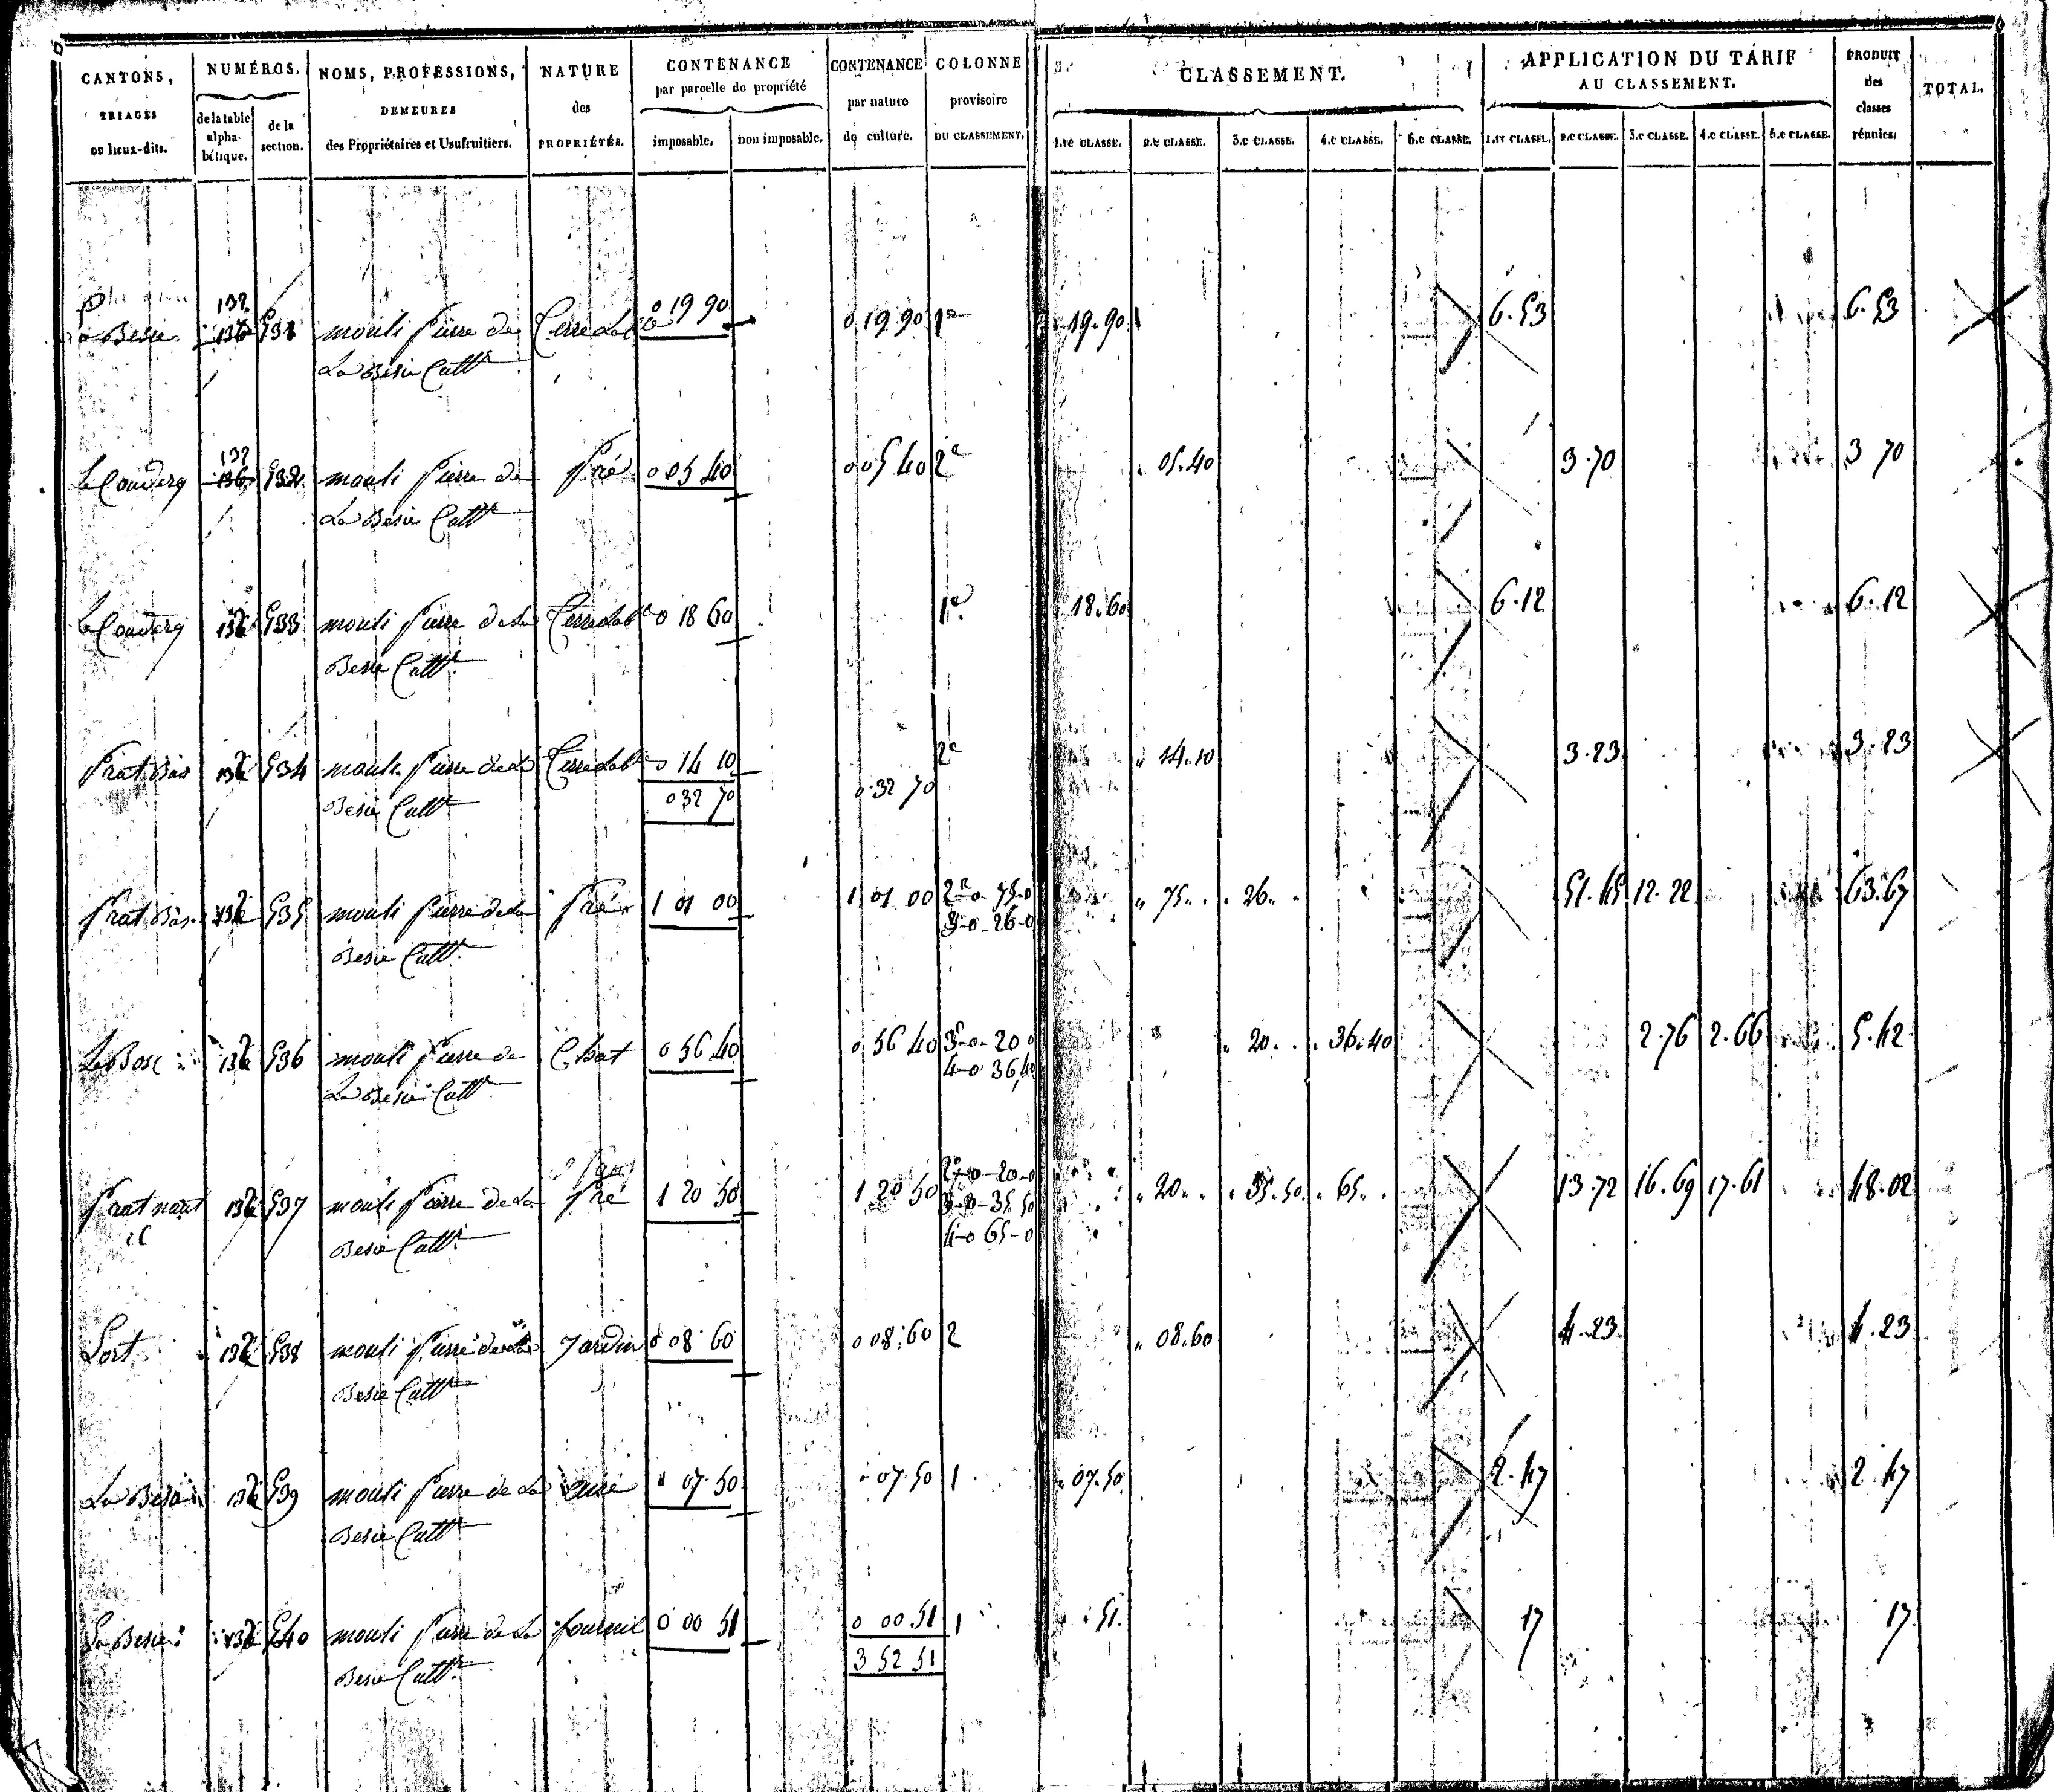 CANTONS, TRIAGES ou lieux-dits.
NUMÉROS. de la table alphabétique. de la section.
NOMS, PROFESSIONS, DEMEURES des Propriétaires et Usufruitiers.
NATURE des PROPRIÉTÉS.
CONTENANCE par parcelle de propriété imposable. non imposable.
CONTENANCE par nature de culture.
COLONNE provisoire DU CLASSEMENT.
CLASSEMENT. 1.re CLASSE. 2.e CLASSE. 3.e CLASSE. 4.e CLASSE. 5.e CLASSE.
APPLICATION DU TARIF AU CLASSEMENT. 1.re CLASSE. 2.e CLASSE. 3.e CLASSE. 4.e CLASSE. 5.e CLASSE.
PRODUIT des classes réunies.
TOTAL.
132
La Besie 136 531 mouli Pierre de Terre Lable 0 19 90 0 19 90 1e 19.90 6.53 6.53
La Besie Cultr
132
Le Couderq 136 532 mouli Pierre de Pré 0 05 40 0 05 40 2e 05.40 3.70 3 70
La Besie Cultr
Le Couderq 132 533 mouli Pierre de La Terre Labe 0 18 60 1e 18.60 6.12 6.12
Besie Cultr
Prat Bas 132 534 mouli Pierre de La Terre Labe 0 14 10 2e 14.10 3.23 3.23
Besie Cultr 0 32 70 0 32 70
Prat Bas 132 535 mouli Pierre de La Pré 1 01 00 1 01 00 2e 0-75-0 75 26 51.45 12.22 63.67
Besie Cultr 3-0-26-0
Le Bosc 132 536 mouli Pierre de Chat 0 56 40 0 56 40 3-0-20 0 20 36.40 2.76 2.66 5.42
La Besie Cultr 4-0 36,40
2e-0-20-0
Prat naut 132 537 mouli Pierre de La Pré 1 20 50 1 20 50 3-0-35 50 20 35.50 65 13.72 16.69 17.61 48.02
Besie Cultr 4-0 65-0
Lort 132 538 mouli Pierre de La Jardin 0 08 60 0 08.60 2 08.60 4.23 4.23
Besie Cultr
La Besie 132 539 mouli Pierre de La 0 07.50 0 07.50 1 07.50 2.47 2.47
Besie Cultr
La Besie 132 540 mouli Pierre de La fournil 0 00 51 0 00.51 1 51 17 17
Besie Cultr 3 52 51